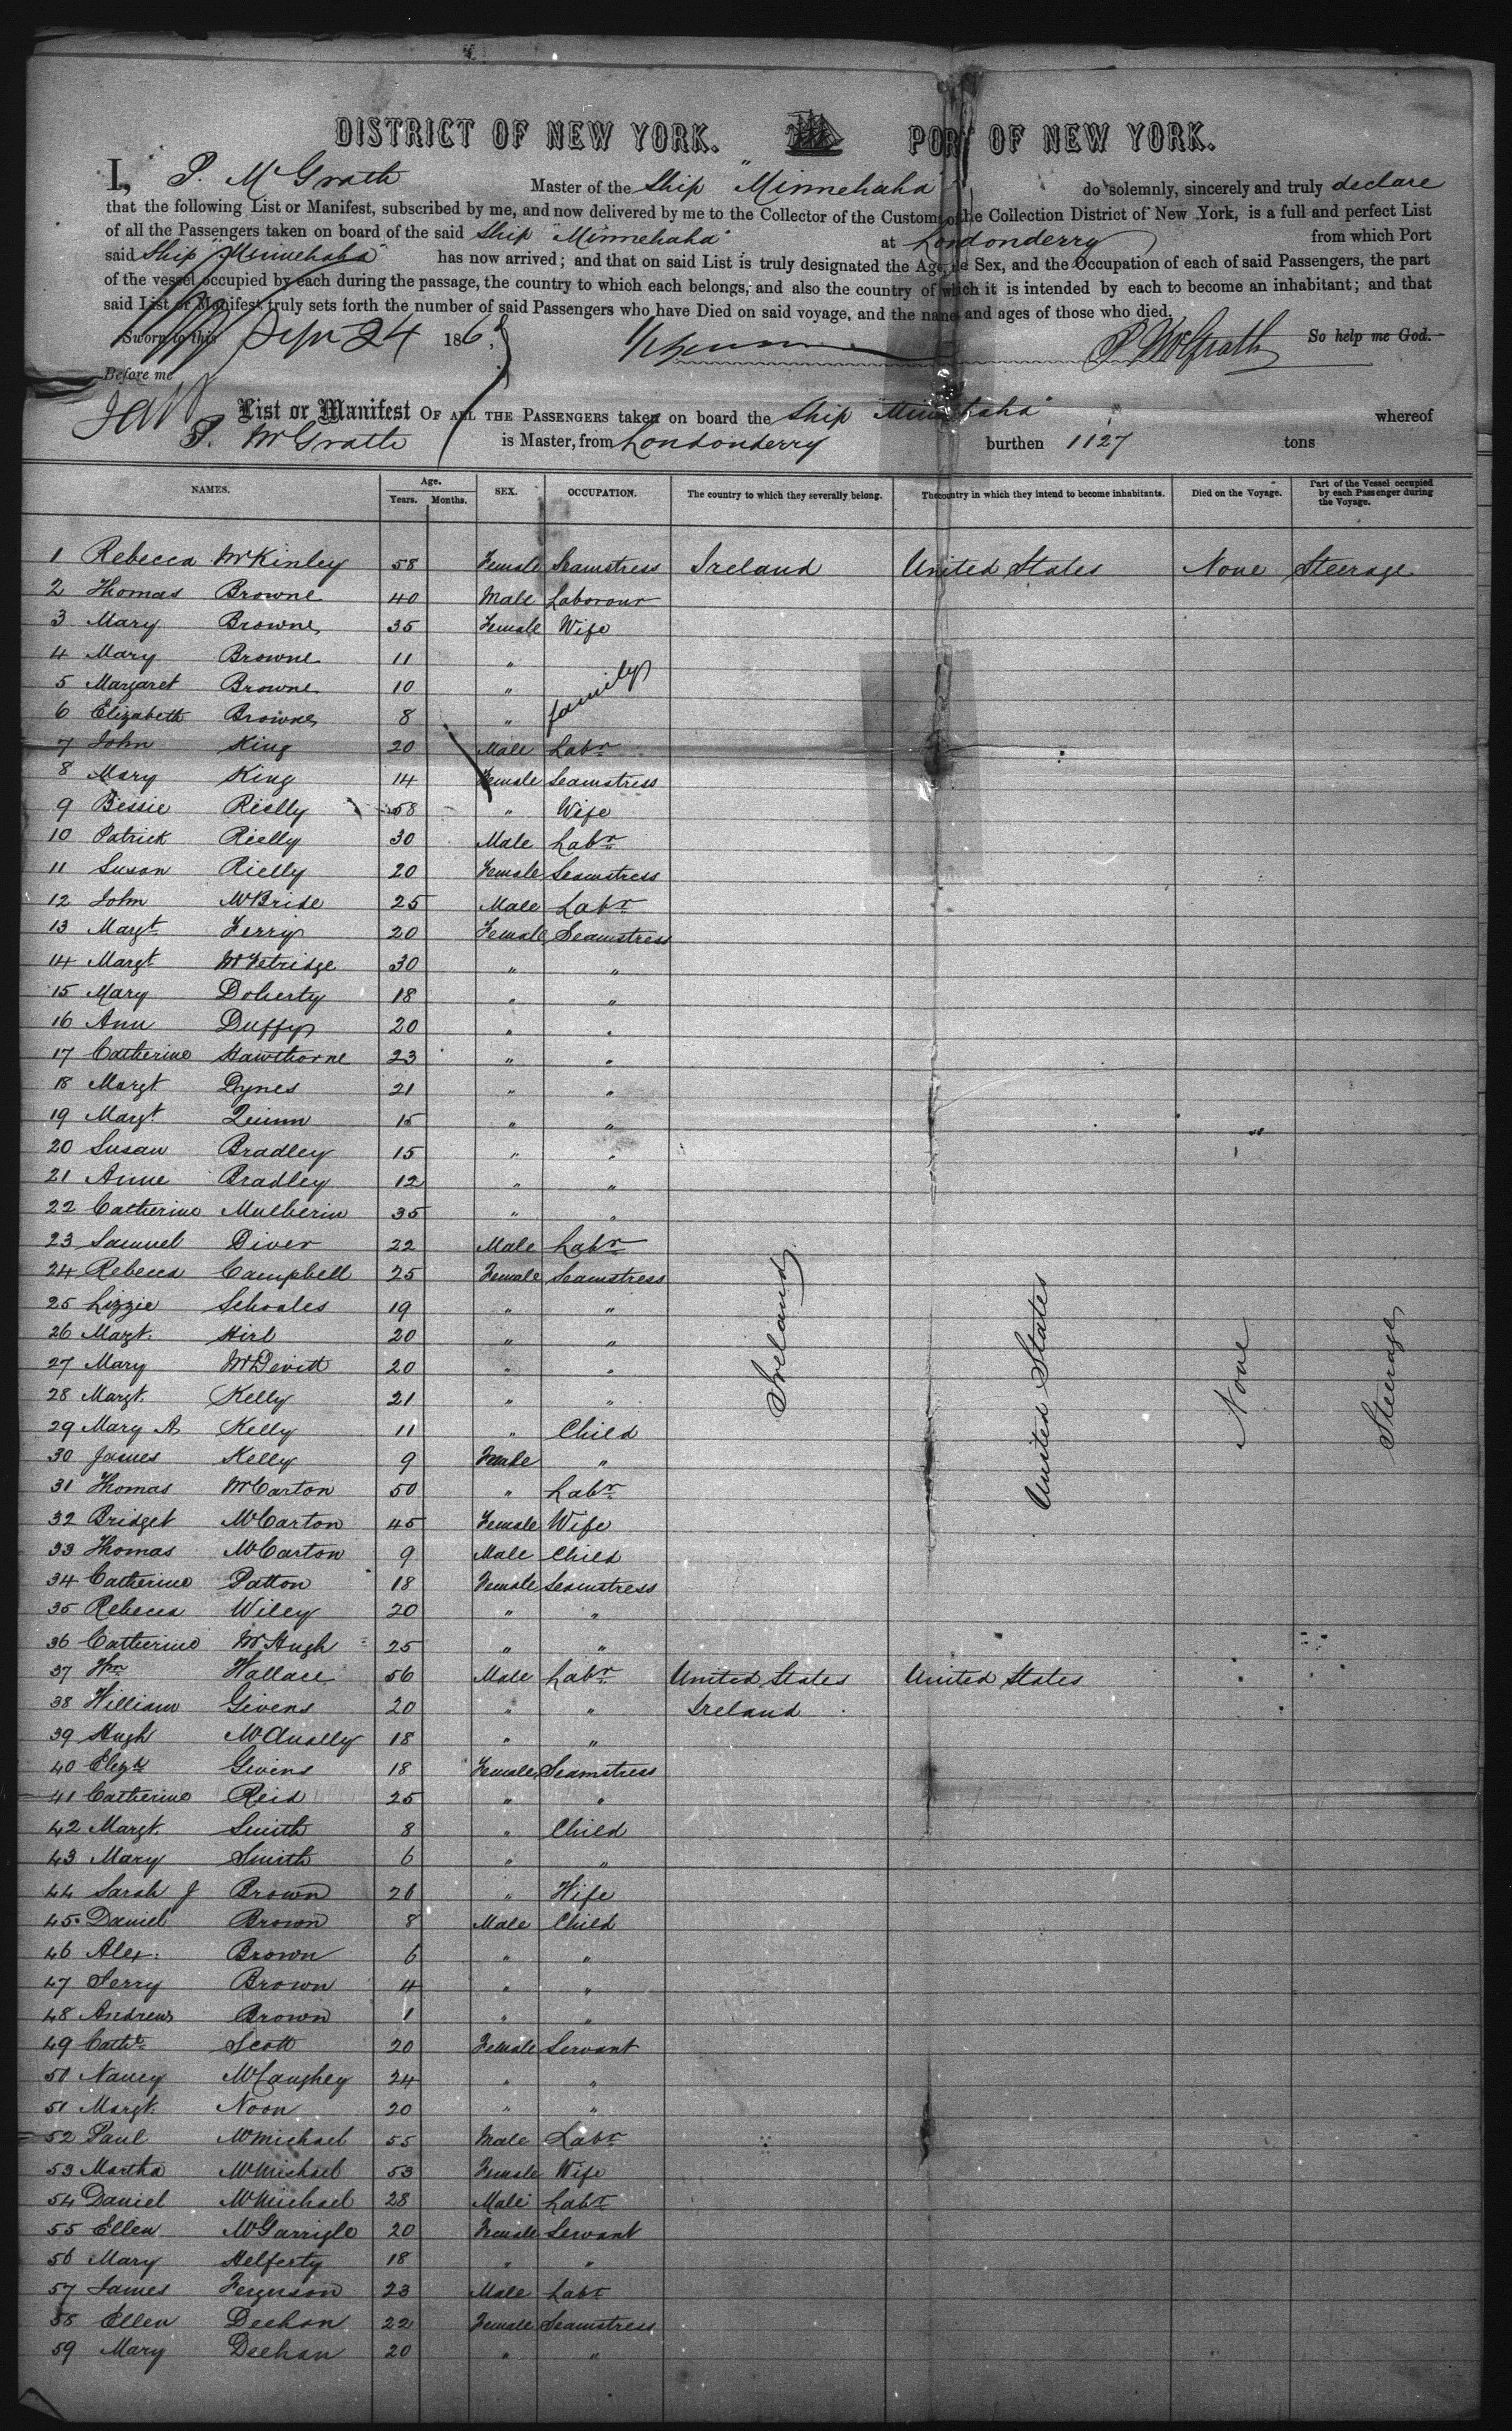 DISTRICT OF NEW YORK. PORT OF NEW YORK.
I, P. McGrath Master of the Ship "Minnehaha" do solemnly, sincerely and truly declare
that the following List or Manifest, subscribed by me, and now delivered by me to the Collector of the Customs of the Collection District of New York, is a full and perfect List
of all the Passengers taken on board of the said Ship "Minnehaha" at Londonderry from which Port
said Ship "Minnehaha" has now arrived; and that on said List is truly designated the Age, the Sex, and the Occupation of each of said Passengers, the part
of the vessel occupied by each during the passage, the country to which each belongs, and also the country of which it is intended by each to become an inhabitant; and that
said List or Manifest truly sets forth the number of said Passengers who have Died on said voyage, and the names and ages of those who died.
Sworn to this Sept 24 186 P. McGrath So help me God.
Before me
List or Manifest OF ALL THE PASSENGERS taken on board the Ship "Minnehaha" whereof
P. McGrath is Master, from Londonderry burthen 1127 tons
NAMES. Age. Years. Months. SEX. OCCUPATION. The country to which they severally belong. The country in which they intend to become inhabitants. Died on the Voyage. Part of the Vessel occupied by each Passenger during the Voyage.
1 Rebecca McKinley 58 Female Seamstress Ireland United States None Steerage
2 Thomas Browne 40 Male Laborour
3 Mary Browne 35 Female Wife
4 Mary Browne 11 "
5 Margaret Browne 10 " family
6 Elizabeth Browne 8 "
7 John King 20 Male Labr
8 Mary King 14 Female Seamstress
9 Bessie Rielly 58 " Wife
10 Patrick Rielly 30 Male Labr
11 Susan Rielly 20 Female Seamstress
12 John McBride 25 Male Labr
13 Margt Ferry 20 Female Seamstress
14 Margt McFetridge 30 " "
15 Mary Doherty 18 " "
16 Ann Duffy 20 " "
17 Catherine Hawthorne 23 " "
18 Margt Dynes 21 " "
19 Margt Quinn 15 " "
20 Susan Bradley 15 " "
21 Anne Bradley 12 " "
22 Catherine Mulherin 35 " "
23 Samuel Diver 22 Male Labr
24 Rebecca Campbell 25 Female Seamstress
25 Lizzie Schoales 19 " "
26 Margt. Hirl 20 " "
27 Mary McDevitt 20 " "
28 Margt. Kelly 21 " "
Ireland United States None Steerage
29 Mary A Kelly 11 " Child
30 James Kelly 9 Female "
31 Thomas McCarton 50 " Labr
32 Bridget McCarton 45 Female Wife
33 Thomas McCarton 9 Male Child
34 Catherine Patton 18 Female Seamstress
35 Rebecca Wiley 20 " "
36 Catherine McHugh 25 " "
37 Wm Wallace 56 Male Labr United States United States
38 William Givens 20 " " Ireland
39 Hugh McAnally 18 " "
40 Elizth Givens 18 Female Seamstress
41 Catherine Reid 25 " "
42 Margt. Smith 8 " Child
43 Mary Smith 6 " "
44 Sarah J Brown 26 " Wife
45 Daniel Brown 8 Male Child
46 Alex: Brown 6 " "
47 Brown 4 " "
48 Andrew Brown 1 " "
49 Cathe Scott 20 Female Servant
50 Nancy McCaughey 24 " "
51 Margt. Noon 20 " "
52 Paul McMichael 55 Male Labr
53 Martha McMichael 53 Female Wife
54 Daniel McMichael 28 Male Labr
55 Ellen McGarrigle 20 Female Servant
56 Mary Helferty 18 " "
57 James Ferguson 23 Male Labr
58 Ellen Deehan 22 Female Seamstress
59 Mary Deehan 20 " "